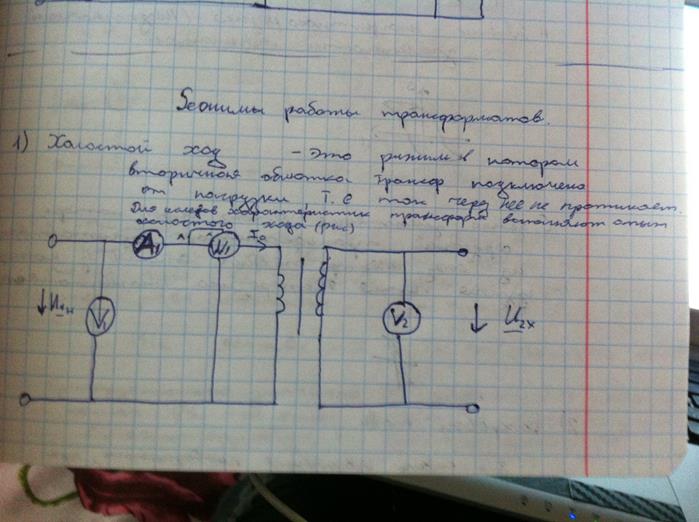 Режимы работы трансформатов.
1) Холостой ход - это режим в котором
вторичная обмотка трансф подключена
от нагрузки, Т.е ток через нее не протикает.
Для характеристик трансформ выполняют опыт
холостого хода (рис)
A₁ W₁ I₀
U₁ₙ V₁ V₂ U₂ₓ